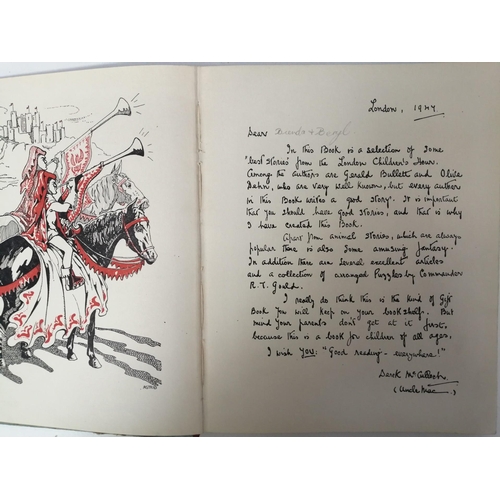 London, 1947.
Dear Brenda & Beryl
In this Book is a selection of some
'best stories' from the London Children's Hour.
Among the authors are Gerald Bullett and Olive
Dehn, who are very well known; but every author
in this Book writes a good story. It is important
that you should have good stories, and that is why
I have created this Book.
Apart from animal stories, which are always
popular there is also some amusing fantasy.
In addition there are several excellent articles
and a collection of arranged Puzzles by Commander
R. T. Gould.
I really do think this is the kind of Gift
Book you will keep on your book shelf. But
mind your parents don't get at it first,
because this is a book for children of all ages.
I wish YOU: "Good reading - everywhere!"
Derek McCulloch
(Uncle Mac.)